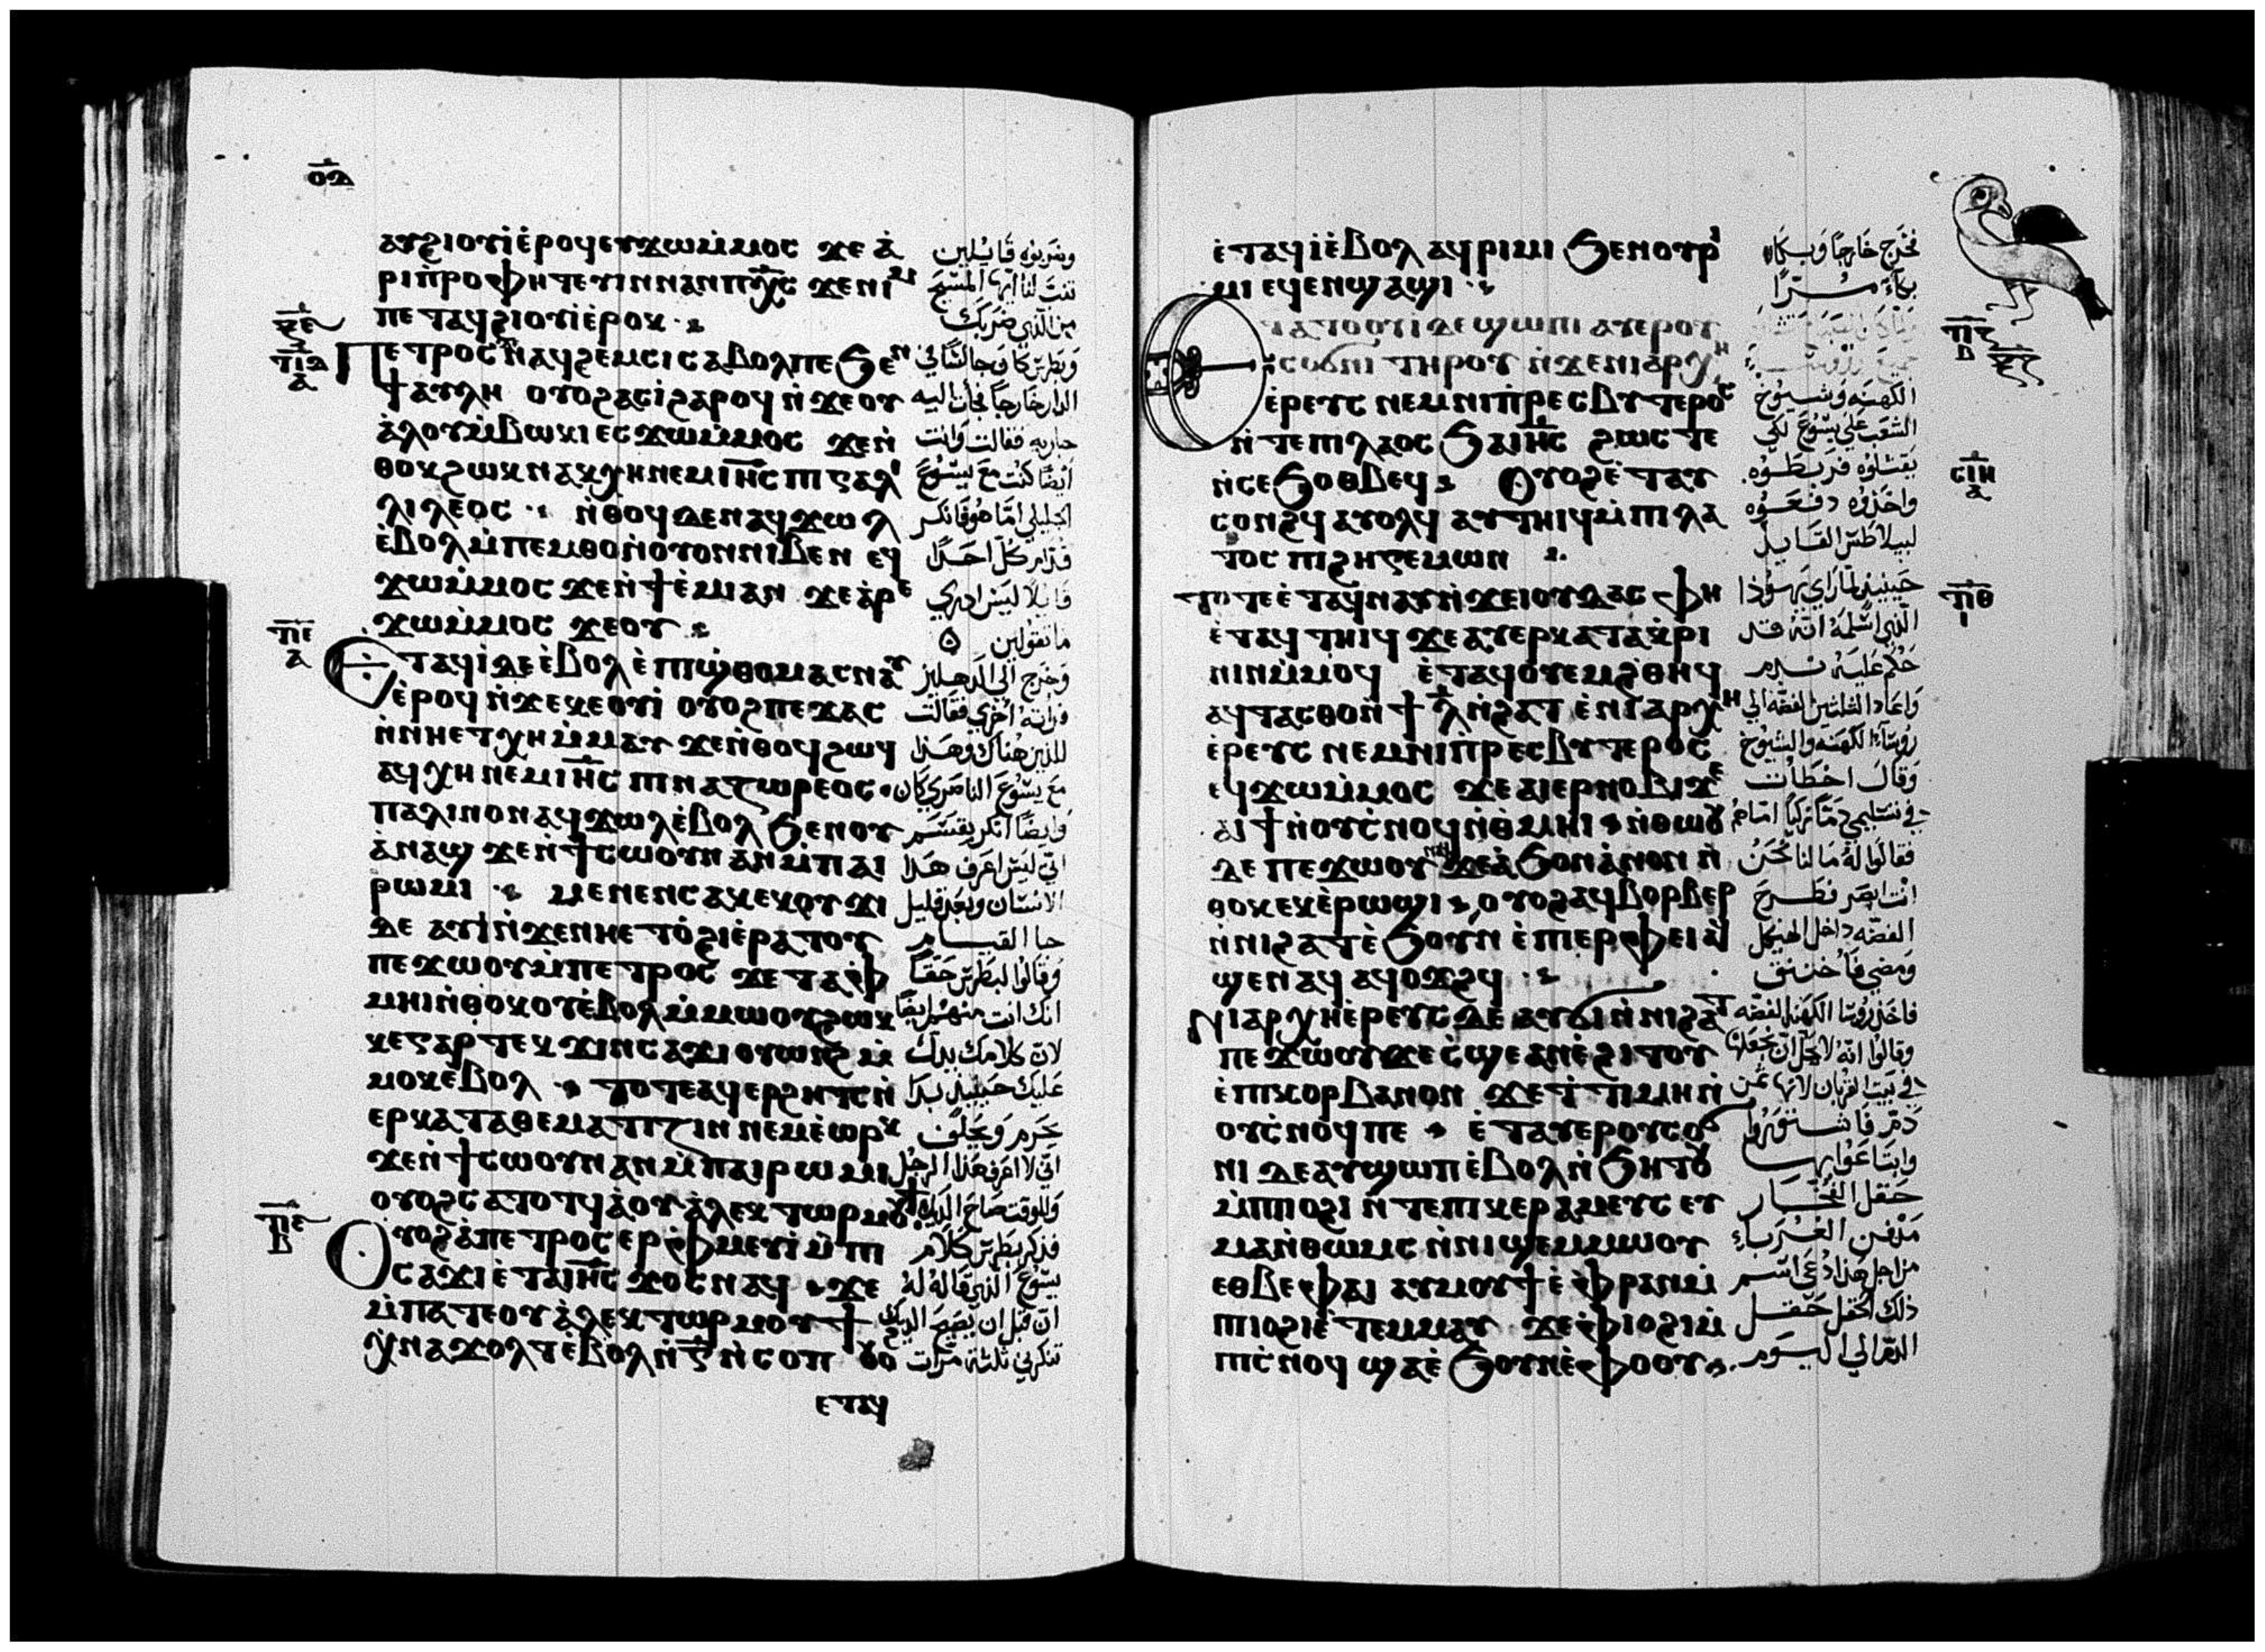 ⲟⲇ
ⲁⲩϩⲓⲟⲩⲓ̀ⲉ̀ⲣⲟϥⲉⲩϫⲱⲙ̀ⲙⲟⲥ ϫⲉ ⲁ̀
ⲣⲓⲡ̀ⲣⲟⲫⲏⲧⲉⲩⲓⲛⲛⲁⲛⲡⲭ̅ⲥ ϫⲉⲛⲓⲙ
ⲡⲉⲧⲁϥϩⲓⲟⲩⲓ̀ⲉ̀ⲣⲟⲕ
ⲡⲉⲧⲣⲟⲥ ⲛⲁϥϩⲉⲙⲥⲓ ⲥⲁⲃⲟⲗⲡⲉ ϧⲉⲛ
ϯⲁⲩⲗⲏ ⲟⲩⲟϩⲁⲥⲓ̀ϩⲁⲣⲟϥ ⲛ̀ϫⲉⲟⲩ
ⲁ̀ⲗⲟⲩⲙ̀ⲃⲱⲕⲓ ⲉⲥϫⲱⲙ̀ⲙⲟⲥ ϫⲉⲛ̀
ⲑⲟⲕϩⲱⲕ ⲛⲁⲕⲭⲏⲛⲉⲙⲓⲏ̅ⲥ ⲡⲓⲅⲁⲗⲓ
ⲗⲓⲗⲉⲟⲥ ⲛ̀ⲑⲟϥⲇⲉⲛⲁϥϫⲱⲗ
ⲉ̀ⲃⲟⲗⲙ̀ⲡⲉⲙⲑⲟⲛ̀ⲟⲩⲟⲛⲛⲓⲃⲉⲛ ⲉϥ
ϫⲱⲙ̀ⲙⲟⲥ ϫⲉⲛ̀ϯⲉ̀ⲙⲓⲁⲛ ϫⲉⲁ̀ⲣⲉ
ϫⲱⲙ̀ⲙⲟⲥ ϫⲉⲟⲩ
ⲉⲧⲁϥⲓ̀ⲇⲉ ⲉ̀ⲃⲟⲗ ⲉ̀ⲡⲓⲱ̀ⲑⲟⲙⲁⲥⲛⲁⲩ
ⲉ̀ⲣⲟϥ ⲛ̀ϫⲉⲕⲉⲟⲩⲓ̀ ⲟⲩⲟϩⲡⲉϫⲁⲥ
ⲛ̀ⲛⲏⲉⲧⲭⲏⲙ̀ⲙⲁⲩ ϫⲉⲛ̀ⲑⲟϥϩⲱϥ
ⲁϥⲭⲏ ⲛⲉⲙⲓⲏ̅ⲥ ⲡⲓⲛⲁⲍⲱⲣⲉⲟⲥ
ⲡⲁⲗⲓⲛⲟⲛⲁϥϫⲱⲗⲉ̀ⲃⲟⲗ ϧⲉⲛⲟⲩ
ⲁ̀ⲛⲁϣ ϫⲉⲛ̀ϯⲥⲱⲟⲩⲛ ⲁⲛⲙ̀ⲡⲁⲓ
ⲣⲱⲙⲓ ⲙⲉⲛⲉⲛⲥⲁⲕⲉⲕⲟⲩϫⲓ
ⲇⲉ ⲁⲩⲓ̀ⲛ̀ϫⲉⲛⲏⲉⲧⲟ̀ϩⲓⲉ̀ⲣⲁⲧⲟⲩ
ⲡⲉϫⲱⲟⲩⲙ̀ⲡⲉⲧⲣⲟⲥ ϫⲉ ⲧⲁⲫ
ⲙⲏⲓⲛ̀ⲑⲟⲕⲟⲩⲉ̀ⲃⲟⲗⲙ̀ⲙⲱⲟⲩϩⲱⲕ
ⲕⲉⲅⲁⲣ ⲧⲉⲕϫⲓⲛⲥⲁϫⲓ ⲟⲩⲱⲛϩ ⲙ̀
ⲙⲟⲕⲉ̀ⲃⲟⲗ ⲧⲟⲧⲉⲁϥⲉⲣϩⲏⲧⲥⲛ̀
ⲉⲣⲕⲁⲧⲁⲑⲉⲙⲁⲧⲓⲍⲓⲛ ⲛⲉⲙⲉ̀ⲱⲣⲕ
ϫⲉⲛ̀ϯⲥⲱⲟⲩⲛ ⲁⲛⲙ̀ⲡⲁⲓⲣⲱⲙⲓ
ⲟⲩⲟϩⲥⲁⲧⲟⲧϥ ⲁ̀ⲟⲩⲁ̀ⲗⲉⲕⲧⲱⲣⲙⲟⲩϯ
ⲟⲩⲟϩⲁ̀ⲡⲉⲧⲣⲟⲥ ⲉⲣⲫⲙⲉⲩⲓ̀ ⲙ̀ⲡⲓ
ⲥⲁϫⲓ ⲉ̀ⲧⲁⲓⲏ̅ⲥ ϫⲟⲥⲛⲁϥ ϫⲉ
ⲙ̀ⲡⲁⲧⲉⲟⲩⲁ̀ⲗⲉⲕⲧⲱⲣ ⲙⲟⲩϯ
ⲭ̀ⲛⲁϫⲟⲗⲧⲉ̀ⲃⲟⲗⲛ̀ⲅ̅ⲛ̀ⲥⲟⲡ ⲟⲩⲟ
ⲉⲧⲁϥ
وضربوه قايلين
تنبت لنا ايها المسيح
من الذي ضربك
وبطرس كان جالسا في
الدار خارجا فجأت اليه
جاريه فقالت وانت
ايضا كنت مع يسوع
الجليلي اما هو فانكر
قدام كل احد
قايلا ليس ادري
ما تقولين
وخرج الي الدهليز
فراته اخري فقالت
للذين هناك وهذا
مع يسوع الناصري كان
وايضا انكر بقسم
اني ليس اعرف هذا
الانسان وبعد قليل
جا القيام
وقالوا لبطرس حقا
انك انت منهم ايضا
لان كلامك يدل
عليك حينيذ بدا
يحرم ويحلف
اني لا اعرف هذا الرجل
وللوقت صاح الديك
فذكر بطرس كلام
يسوع الذي قاله له
ان قبل ان يصيح الديك
تنكرني ثلثة مرات
ⲉ̀ⲧⲁϥⲓ̀ⲉ̀ⲃⲟⲗ ⲁϥⲣⲓⲙⲓ ϧⲉⲛⲟⲩⲣⲓ
ⲙⲓ ⲉϥⲉⲛϣⲁϣⲓ
ⲉⲧⲁⲧⲟⲟⲩⲓ̀ ⲇⲉ ϣⲱⲡⲓ ⲁⲩⲉⲣⲟⲩ
ⲥⲟϭⲛⲓ ⲧⲏⲣⲟⲩ ⲛ̀ϫⲉⲛⲓⲁⲣⲭⲏ
ⲉ̀ⲣⲉⲩⲥ ⲛⲉⲙⲛⲓⲡ̀ⲣⲉⲥⲃⲩⲧⲉⲣⲟⲥ
ⲛ̀ⲧⲉⲡⲓⲗⲁⲟⲥ ϧⲁⲓⲏ̅ⲥ ϩⲱⲥⲧⲉ
ⲛ̀ⲥⲉϧⲟⲑⲃⲉϥ ⲟⲩⲟϩⲉ̀ⲧⲁⲩ
ⲥⲟⲛϩϥ ⲁⲩⲟⲗϥ ⲁⲩⲧⲏⲓϥⲙ̀ⲡⲓⲗⲁ
ⲧⲟⲥ ⲡⲓϩⲏⲅⲉⲙⲱⲛ
ⲧⲟⲧⲉ ⲉ̀ⲧⲁϥⲛⲁⲩⲛ̀ϫⲉⲓⲟⲩⲇⲁⲥ ⲫⲏ
ⲉ̀ⲧⲁϥⲧⲏⲓϥ ϫⲉⲁⲩⲉⲣⲕⲁⲧⲁⲕ̀ⲣⲓ
ⲛⲓⲛⲙ̀ⲙⲟϥ ⲉ̀ⲧⲁϥⲟⲩⲉⲙϩ̀ⲑⲏϥ
ⲁϥⲧⲁⲥⲑⲟⲛ̀ϯⲗ̅ⲛ̀ϩⲁⲧ ⲉ̀ⲛⲓⲁⲣⲭⲏ
ⲉ̀ⲣⲉⲩⲥ ⲛⲉⲙⲛⲓⲡ̀ⲣⲉⲥⲃⲩⲧⲉⲣⲟⲥ
ⲉϥϫⲱⲙ̀ⲙⲟⲥ ϫⲉⲁⲓⲉⲣⲛⲟⲃⲓϫⲉ
ⲁⲓϯⲛ̀ⲟⲩⲥ̀ⲛⲟϥⲛ̀ⲑ̀ⲙⲏⲓ ⲛ̀ⲑⲱⲟⲩ
ⲇⲉ ⲡⲉϫⲱⲟⲩ ϫⲉⲁ̀ϧⲟⲛⲁ̀ⲛⲟⲛ ⲛ̀
ⲑⲟⲕⲉⲕⲉ̀ⲣⲱϣⲓ ⲟⲩⲟϩⲁϥⲃⲟⲣⲃⲉⲣ
ⲛ̀ⲛⲓϩⲁⲧⲉ̀ϧⲟⲩⲛ ⲉ̀ⲡⲓⲉⲣⲫⲉⲓ ⲁϥ
ϣⲉⲛⲁϥ ⲁϥⲟϫϩϥ
ⲛⲓⲁⲣⲭⲏⲉ̀ⲣⲉⲩⲥ ⲇⲉ ⲁⲩϭⲓⲛ̀ⲛⲓϩⲁⲧ
ⲡⲉϫⲱⲟⲩϫⲉⲥ̀ϣⲉ ⲁⲛⲉ̀ϩⲓⲧⲟⲩ
ⲉ̀ⲡⲓⲕⲟⲣⲃⲁⲛⲟⲛ ϫⲉⲧ̀ⲧⲓⲙⲏⲛ̀
ⲟⲩⲥ̀ⲛⲟϥⲡⲉ ⲉ̀ⲧⲁⲩⲉⲣⲟⲩⲥⲟϭ
ⲛⲓ ⲇⲉⲁⲩϣⲱⲡⲉ̀ⲃⲟⲗⲛ̀ϧⲏⲧⲟⲩ
ⲙ̀ⲡⲓⲓⲟϩⲓ ⲛ̀ⲧⲉⲡⲓⲕⲉⲣⲁⲙⲉⲩⲥ ⲉⲩ
ⲙⲁⲛ̀ⲑⲱⲙⲥ ⲛ̀ⲛⲓϣⲉⲙⲙⲱⲟⲩ
ⲉⲑⲃⲉⲫⲁⲓ ⲁⲩⲙⲟⲩϯⲉ̀ⲫ̀ⲣⲁⲛⲙ̀
ⲡⲓⲓⲟϩⲓⲉ̀ⲧⲉⲙⲙⲁⲩ ϫⲉⲫ̀ⲓⲟϩⲓⲙ̀
ⲡⲥ̀ⲛⲟϥ ϣⲁⲉ̀ϧⲟⲩⲛⲉ̀ⲫⲟⲟⲩ
فخرج خارجا وبكاء
بكاء مرا
الكهنه وشيوخ
الشعب علي يسوع لكي
يقتلوه فربطوه
واخذوه دفعوه
لبيلاطس القايد
حينيذ لما راي يهوذا
الذي اسلمه انه قد
حكم عليه ندم
واعاد الثلثين الفضه الي
روسآء الكهنه والشيوخ
وقال اخطات
في تسليمي دما زكيا اما هم
فقالوا له ما لنا نحن
انت ابصر فطرح
الفضه داخل الهيكل
ومضي فاختنق
فاخذ روسا الكهنه الفضه
وقالوا انه لا يحل ان نجعلها
في بيت القربان لانها ثمن
دم فاتشوروا
وابتاعوا بها
حقل الفخار
مدفن الغرباء
من اجل هذا دعي اسم
ذلك الحقل حقل
الدم الي اليوم
ⲡⲑ
ⲓ
ⲥⲓⲏ
ⲁ